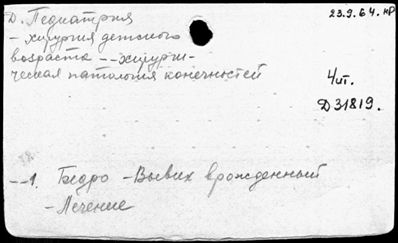 Д. Педиатрия
23.9.64. нр
- хирургия детского
возраста -- хирурги-
ческая патология конечностей
4 чт.
Д 31819.
--1. Бедро - Вывих врожденный
- Лечение